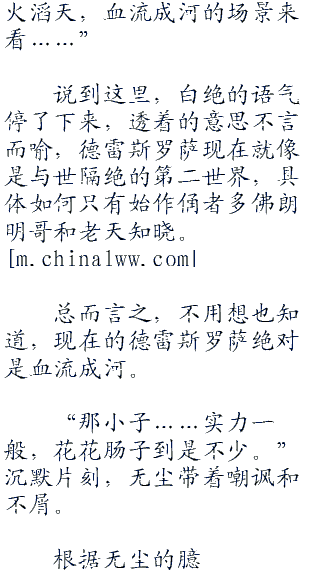 火滔天，血流成河的场景来
看……”
说到这里，白绝的语气
停了下来，透着的意思不言
而喻，德雷斯罗萨现在就像
是与世隔绝的第二世界，具
体如何只有始作俑者多佛朗
明哥和老天知晓。
[m.china1ww.com]
总而言之，不用想也知
道，现在的德雷斯罗萨绝对
是血流成河。
“那小子……实力一
般，花花肠子到是不少。”
沉默片刻，无尘带着嘲讽和
不屑。
根据无尘的臆